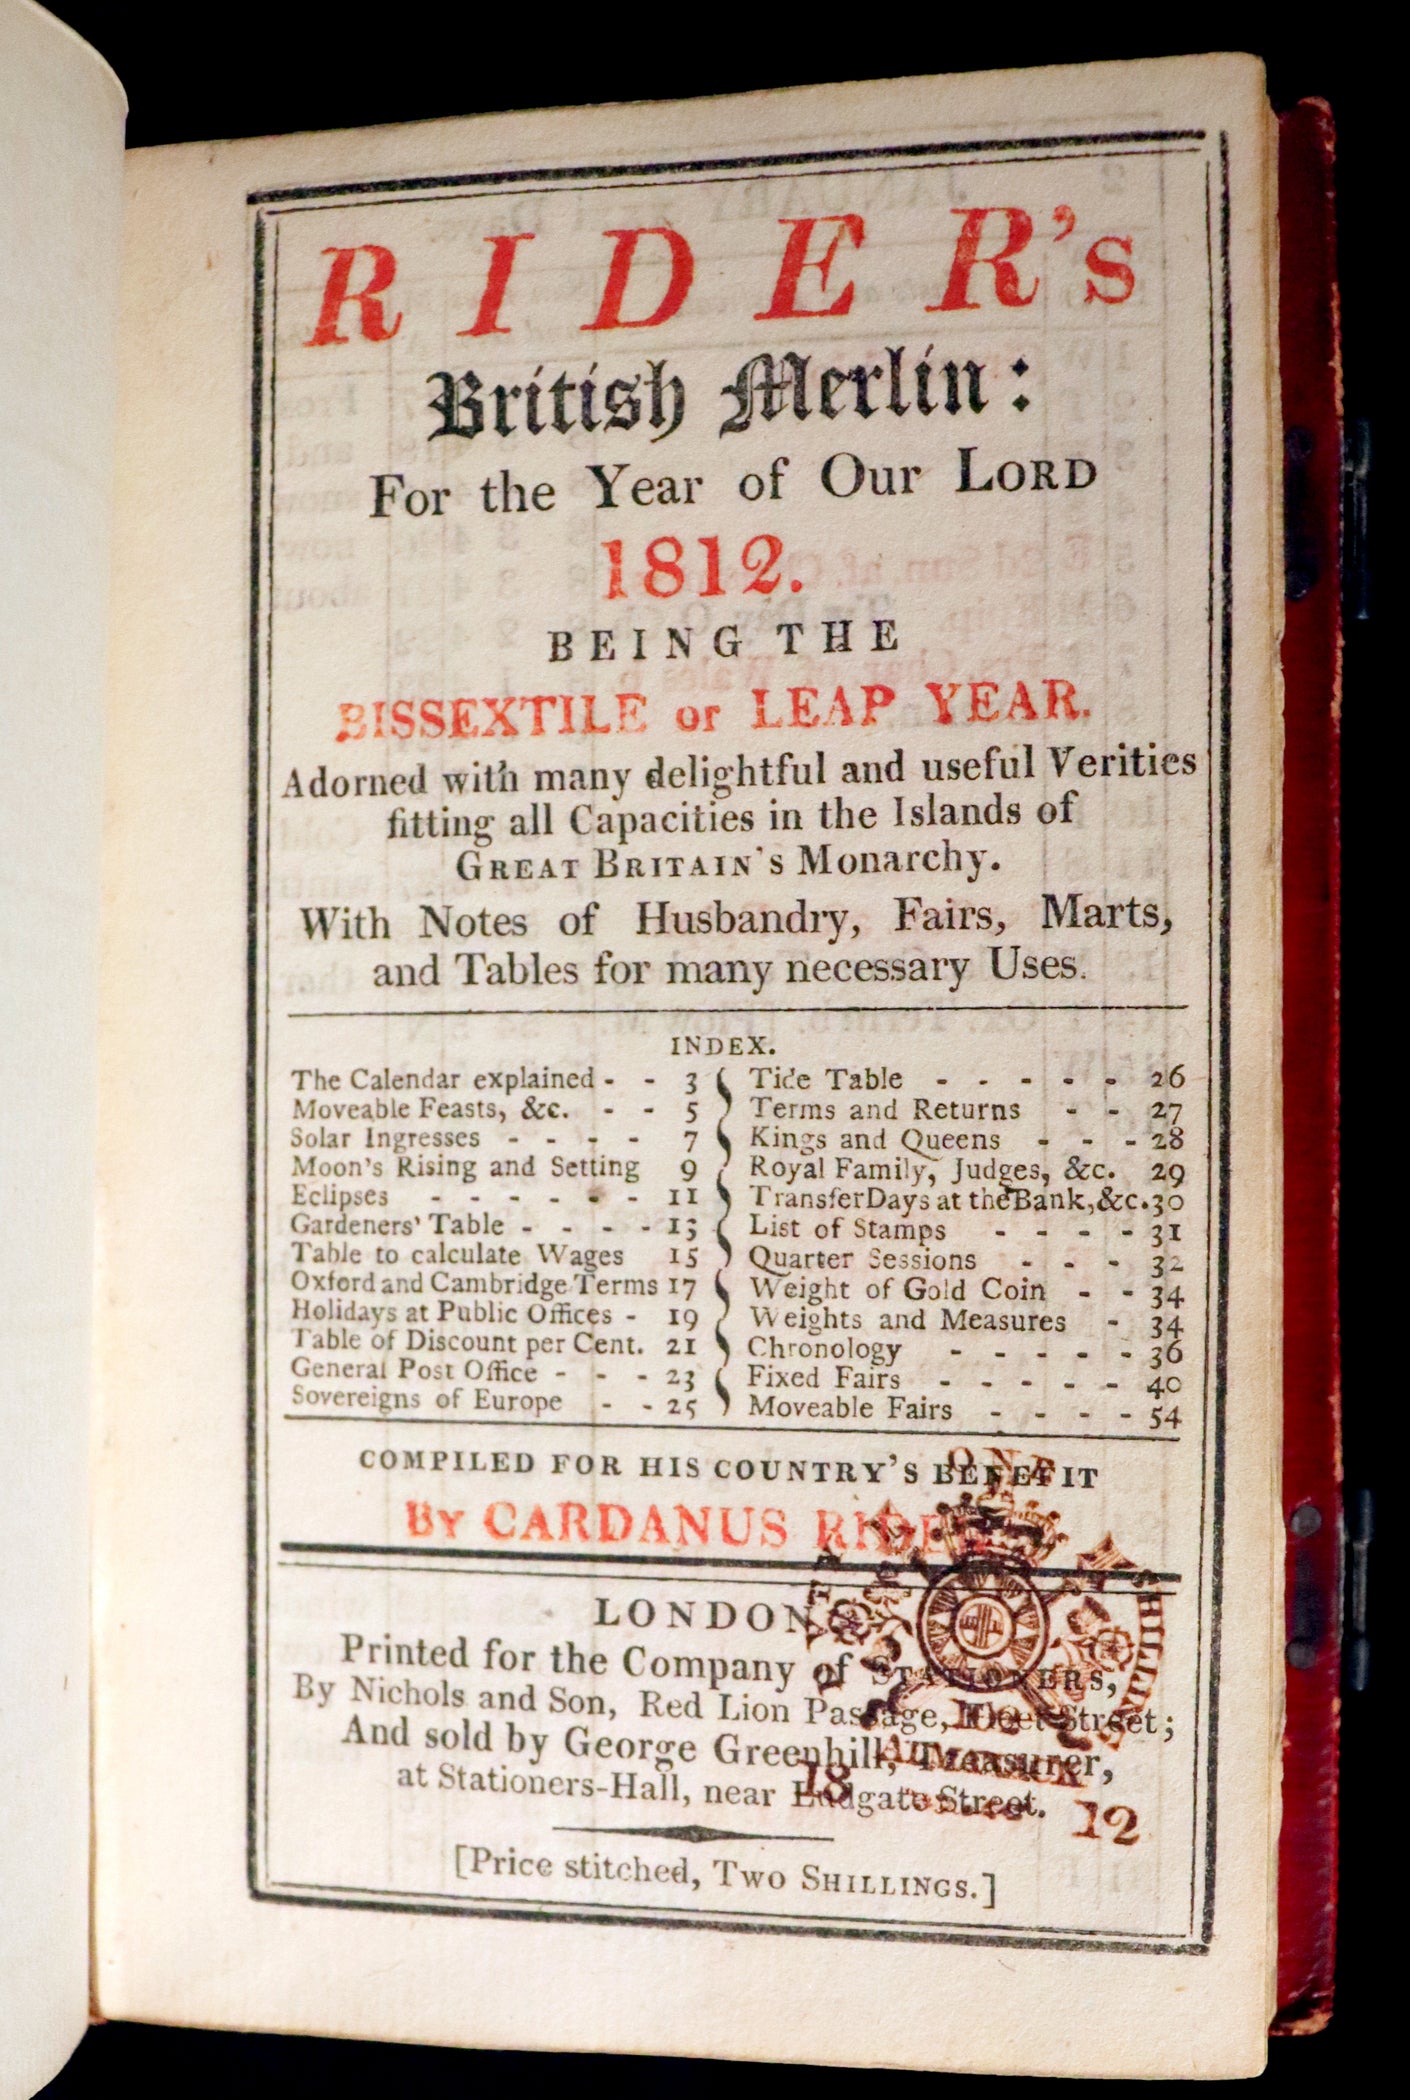 RIDER's
British Merlin:
For the Year of Our LORD
1812.
BEING THE
BISSEXTILE or LEAP YEAR.
Adorned with many delightful and useful Verities
fitting all Capacities in the Islands of
GREAT BRITAIN's Monarchy.
With Notes of Husbandry, Fairs, Marts,
and Tables for many necessary Uses.
INDEX.
The Calendar explained - - 3
Moveable Feasts, &c. - - 5
Solar Ingresses - - - - 7
Moon's Rising and Setting 9
Eclipses - - - - - - 11
Gardeners' Table - - - - 13
Table to calculate Wages 15
Oxford and Cambridge Terms 17
Holidays at Public Offices - 19
Table of Discount per Cent. 21
General Post Office - - - 23
Sovereigns of Europe - - 25
Tide Table - - - - - 26
Terms and Returns - - 27
Kings and Queens - - - 28
Royal Family, Judges, &c. 29
Transfer Days at the Bank, &c. 30
List of Stamps - - - - 31
Quarter Sessions - - - 32
Weight of Gold Coin - - 34
Weights and Measures - 34
Chronology - - - - - 36
Fixed Fairs - - - - - 40
Moveable Fairs - - - - 54
COMPILED FOR HIS COUNTRY'S BENEFIT
By CARDANUS RIDER
LONDON
Printed for the Company of STATIONERS,
By Nichols and Son, Red Lion Passage, Fleet Street;
And sold by George Greenhill, Treasurer,
at Stationers-Hall, near Ludgate Street.
[Price stitched, TWO SHILLINGS.]
ONE
SHILLING
ALMANACK
18 12